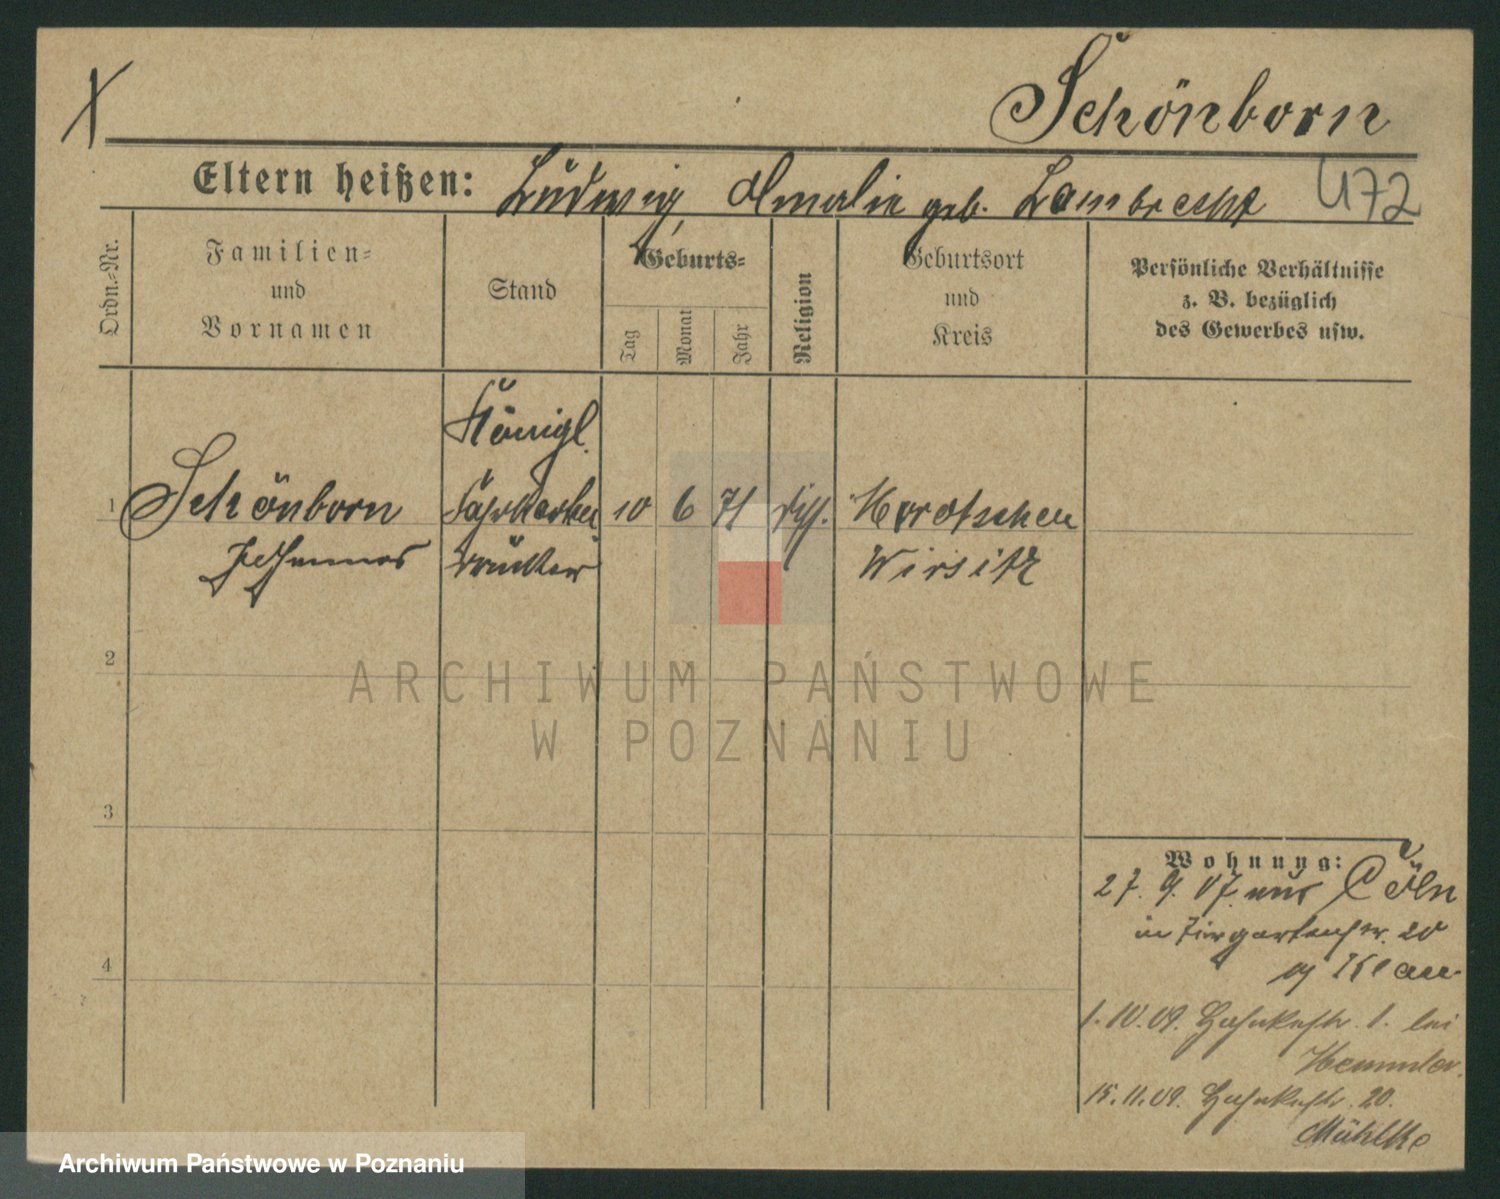 Schönborn
Eltern heißen: Ludwig, Amalie geb. Lambrecht 472
Ordn.-Nr.
Familien-
und
Vornamen
Stand
Geburts-
Tag
Monat
Jahr
Religion
Geburtsort
und
Kreis
Persönliche Verhältnisse
z. B. bezüglich
des Gewerbes usw.
Königl.
1 Schönborn 10 6 71 diss.
Johannes
Wirsitz
2
3
4
Wohnung:
27. 9. 07 aus Cöln
in Tiergartenstr. 20
1. 10. 09. 1. bei
15. 11. 09. 20.
Mühlke
ARCHIWUM PAŃSTWOWE
W POZNANIU
Archiwum Państwowe w Poznaniu